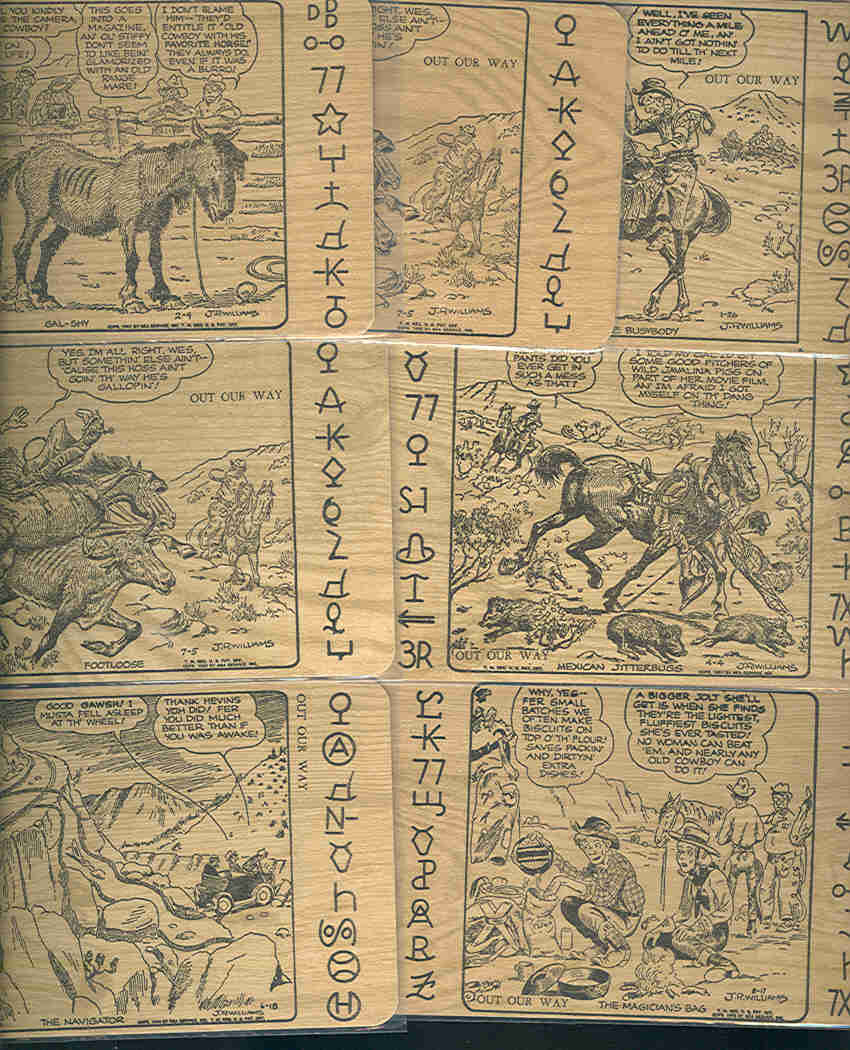 YOU KINDLY
THE CAMERA,
COWBOY?
ON
LIFE!
THIS GOES
INTO A
MAGAZINE,
AN' OL' STIFFY
DON'T SEEM
TO LIKE BEIN'
GLAMORIZED
WITH AN OLD
RANGE
MARE!
I DON'T BLAME
HIM--THEY'D
ENTITLE IT "OLD
COWBOY WITH HIS
FAVORITE HORSE!"
THEY ALWAYS DO,
EVEN IF IT WAS
A BURRO!
GAL-SHY
2-4
J.R.WILLIAMS
77
IGHT, WES,
ELSE AIN'T--
HOSS AINT
HE'S
IN'!
OUT OUR WAY
7-5
J.R.WILLIAMS
WELL, I'VE SEEN
EVERYTHING A MILE
AHEAD O' ME, AN'
I AIN'T GOT NOTHIN'
TO DO TILL TH' NEXT
MILE!
OUT OUR WAY
BUSYBODY
1-26
J.R.WILLIAMS
3R
YES, I'M ALL RIGHT, WES,
BUT SOMETHIN' ELSE AIN'T--
'CAUSE THIS HOSS AIN'T
GOIN' TH' WAY HE'S
GALLOPIN'!
OUT OUR WAY
FOOTLOOSE
7-5
J.R.WILLIAMS
77
3R
PANTS DID YOU
EVER GET IN
SUCH A MESS
AS THAT?
SOME GOOD PITCHERS OF
WILD JAVALINA PIGS ON
PART OF HER MOVIE FILM,
AN' I'M AFRAID I GOT
MYSELF ON TH' DANG
THING!
OUT OUR WAY
MEXICAN JITTERBUGS
4-4
J.R.WILLIAMS
7X
GOOD GAWSH! I
MUSTA FELL ASLEEP
AT TH' WHEEL!
THANK HEVINS
YOH DID! FER
YOU DID MUCH
BETTER THAN IF
YOU WAS AWAKE!
OUT OUR WAY
THE NAVIGATOR
6-18
J.R.WILLIAMS
77
WHY, YES--
FER SMALL
BATCHES WE
OFTEN MAKE
BISCUITS ON
TOP O' TH' FLOUR!
SAVES PACKIN'
AND DIRTYN'
EXTRA
DISHES!
A BIGGER JOLT SHE'LL
GET IS WHEN SHE FINDS
THEY'RE THE LIGHTEST,
FLUFFIEST BISCUITS
SHE'S EVER TASTED!
NO WOMAN CAN BEAT
'EM, AND NEARLY ANY
OLD COWBOY CAN
DO IT!
OUT OUR WAY
THE MAGICIAN'S BAG
8-17
J.R.WILLIAMS
7X